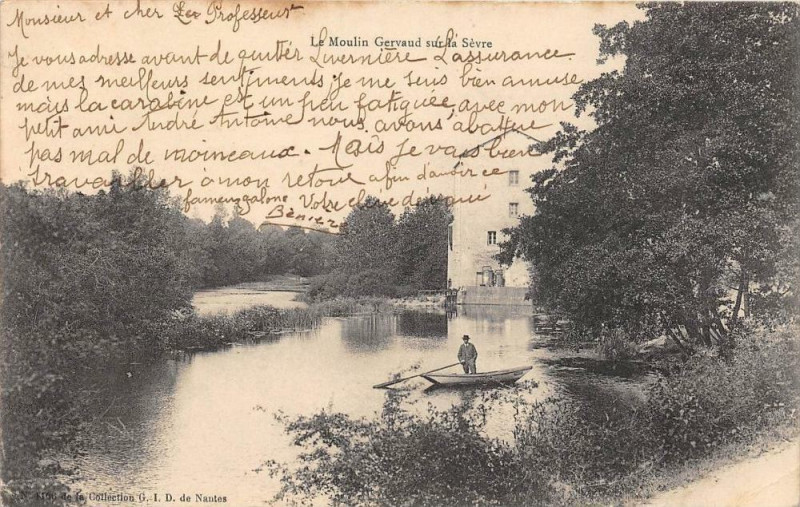 Monsieur et cher Le Professeur
Le Moulin Gervaud sur la Sèvre
Je vous adresse avant de quitter Livernière L'assurance
de mes meilleurs sentiments je me suis bien amusé
mais la carabine est un peu fatiguée, avec mon
petit ami André Antoine nous avons abattu
pas mal de moineaux. Mais je vais bien
travailler à mon retour afin d'avoir ce
fameux galon. Votre élève dévoué
de la Collection G. I. D. de Nantes